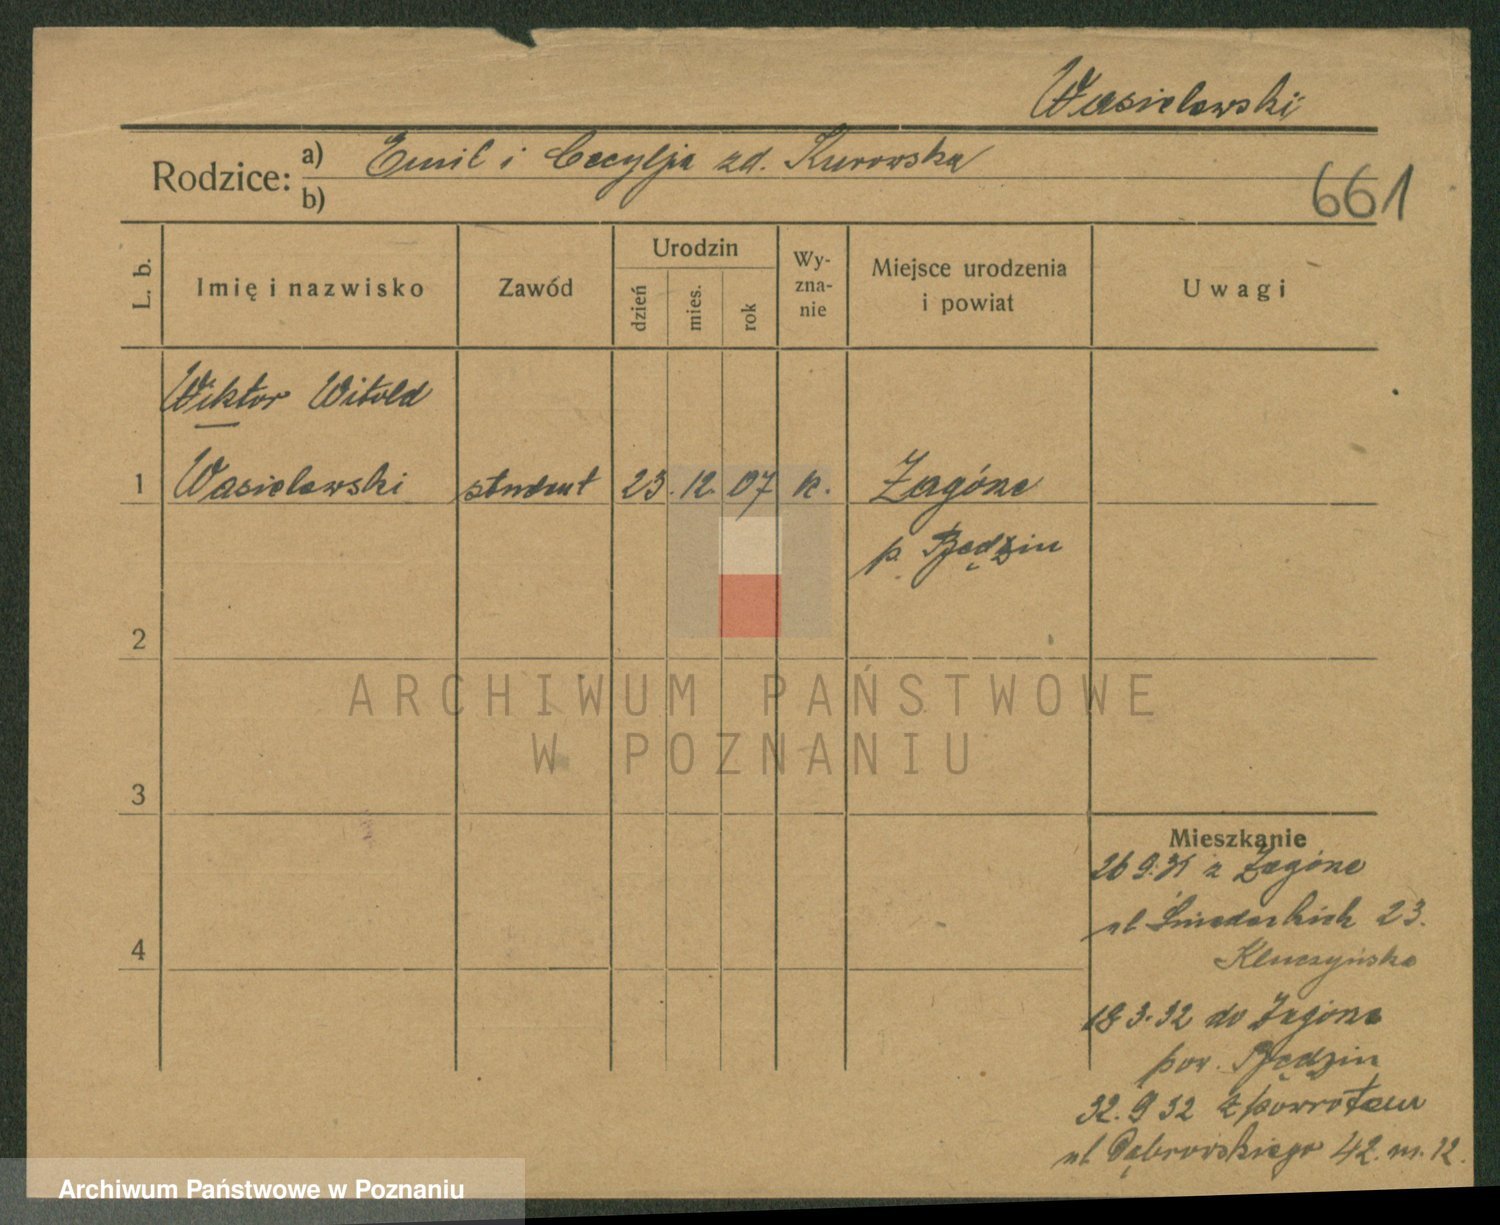 Wasielewski
Rodzice: a) Emil i Cecylja zd. Kurowska
b)
661
L. b. Imię i nazwisko Zawód Urodzin dzień mies. rok Wy-zna-nie Miejsce urodzenia i powiat Uwagi
Wiktor Witold
1 Wasielewski student 23. 12. 07 k. Zagórze
p. Będzin
2
3
4
Mieszkanie
26 9. 31 z Zagórze
ul Śniadeckich 23.
Kluczyńska
18 3. 32 do Zagórze
pow. Będzin
9 32 z powrotem
ul Dąbrowskiego 42. m. 12.
ARCHIWUM PAŃSTWOWE
W POZNANIU
Archiwum Państwowe w Poznaniu